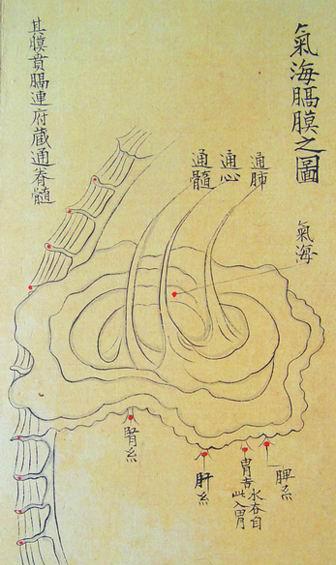 氣海膈膜之圖
氣海
通肺
通心
通髓
其膜貫膈連府藏通脊髓
脾系
水谷自
此入胃
肝系
腎系